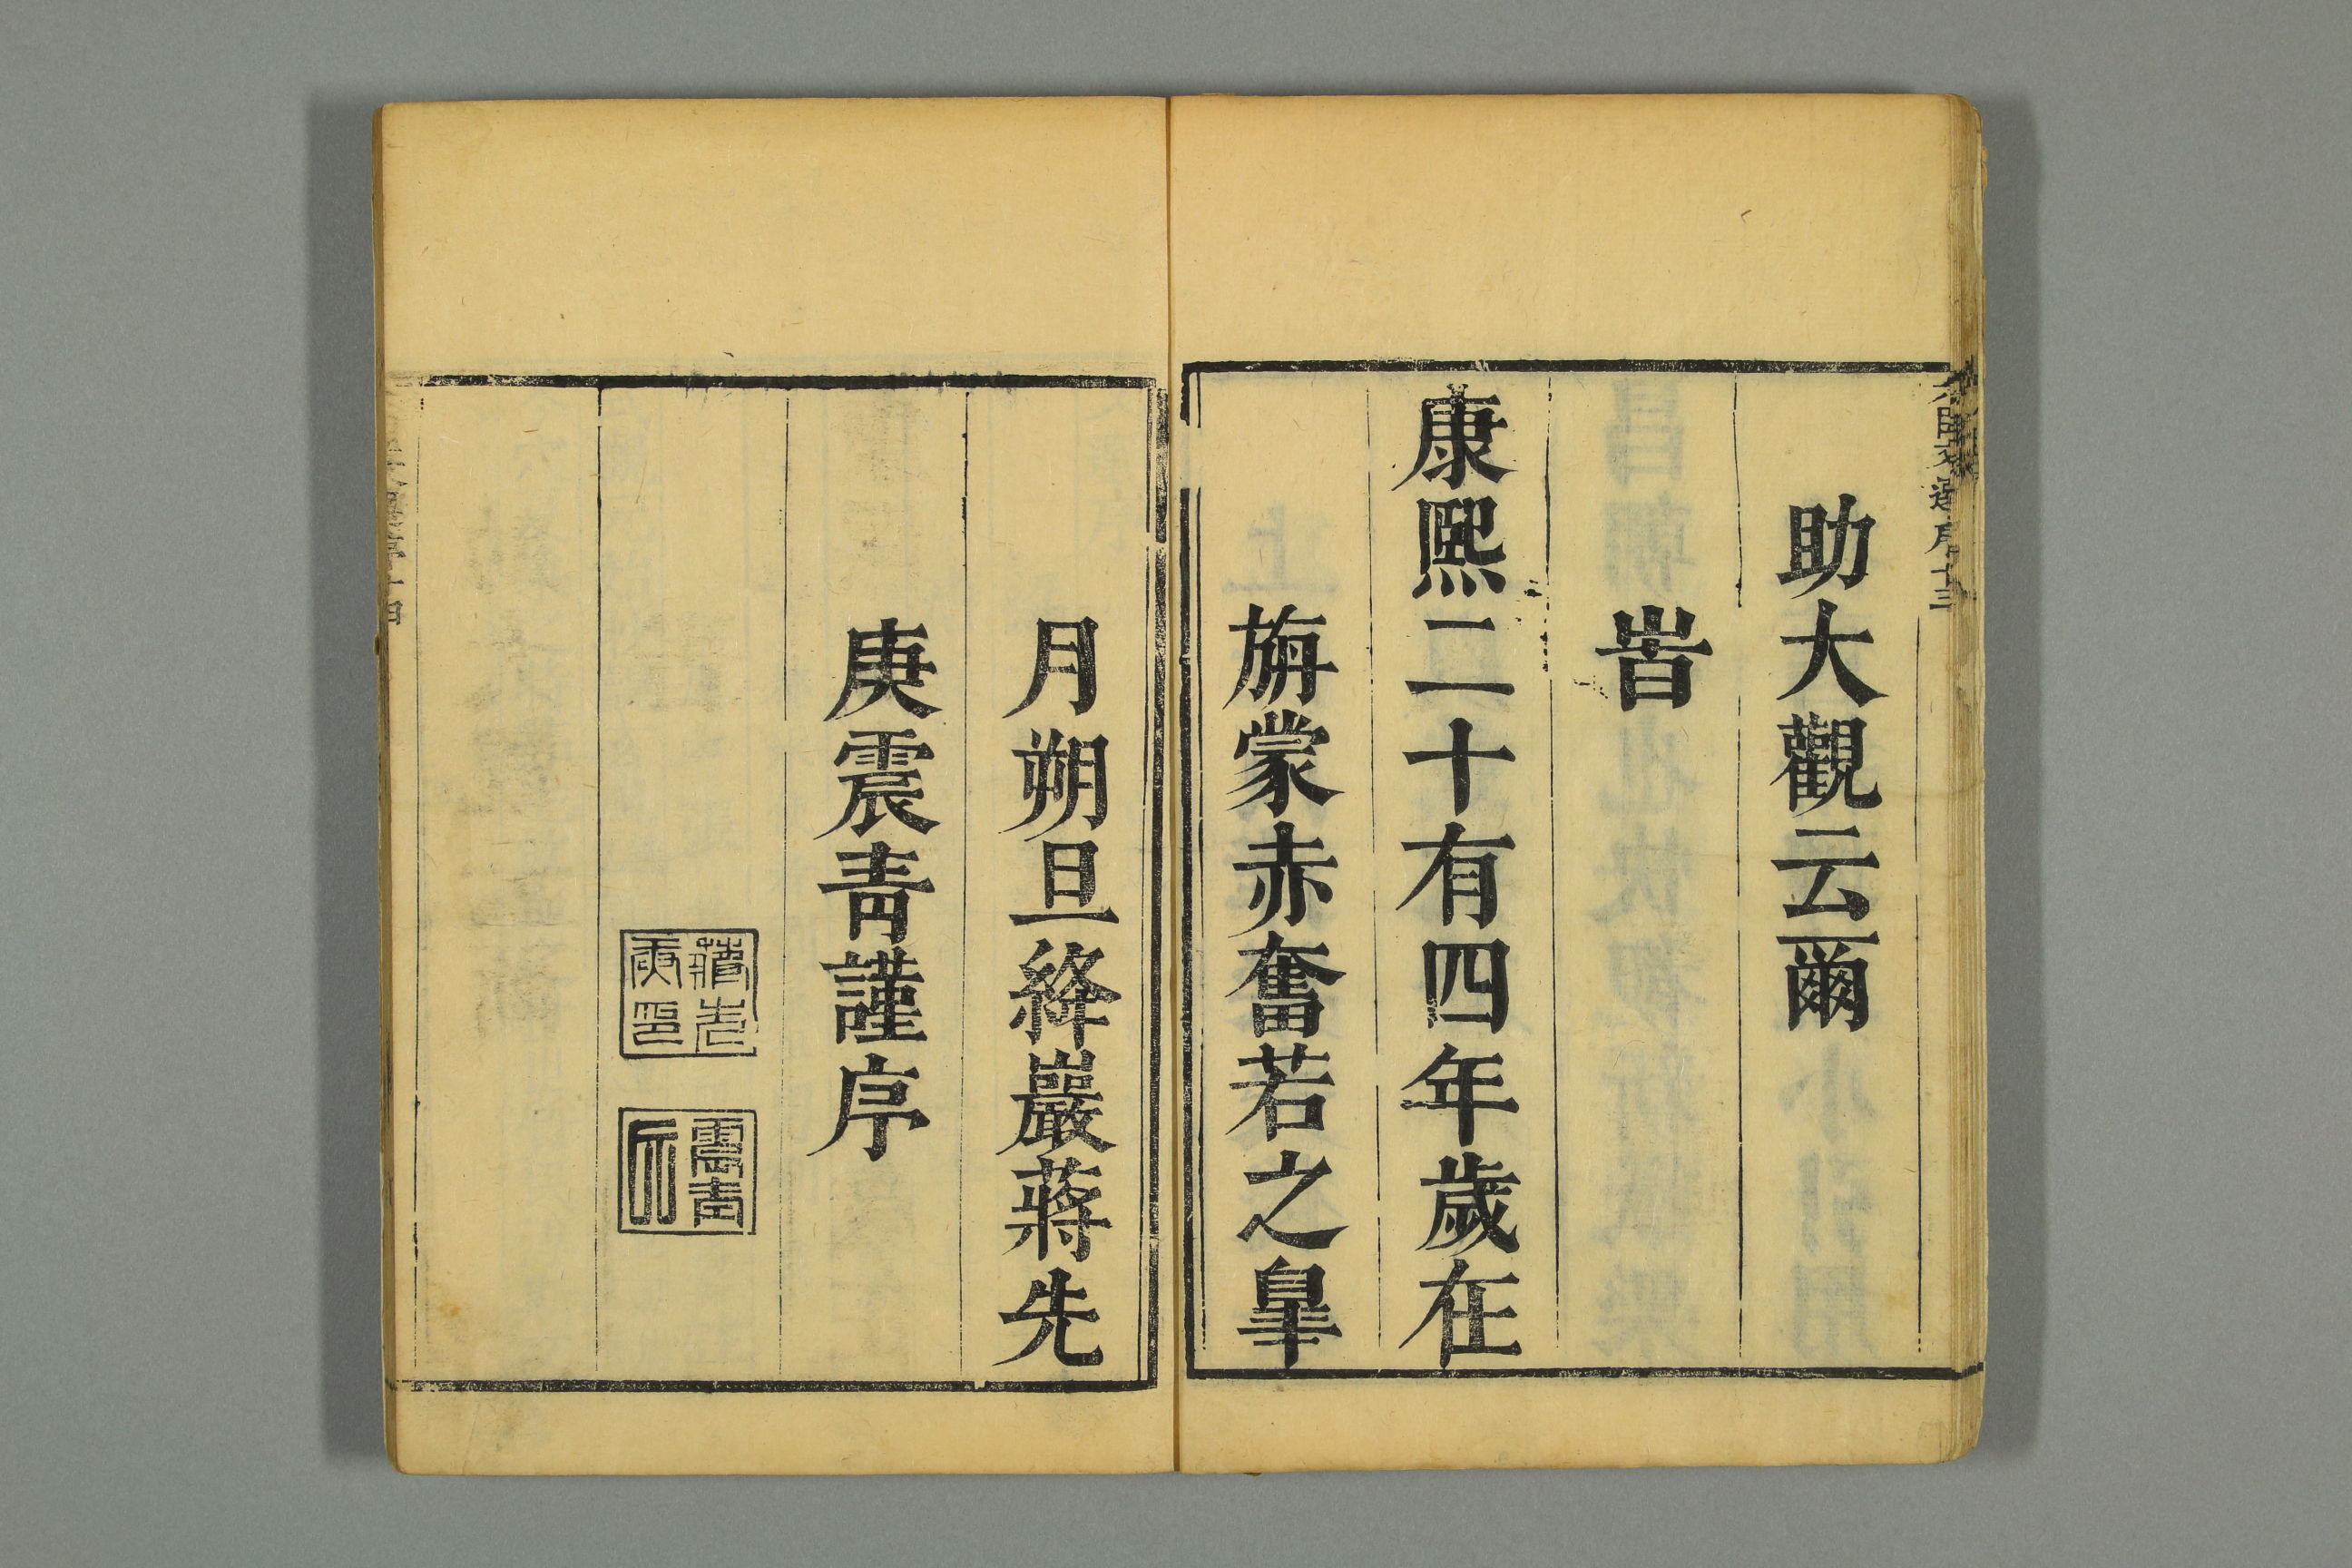 助大觀云爾
旹
康熙二十有四年歲在
旃蒙赤奮若之臯
月朔旦絳巖蔣先
庚震青謹序
蔣先
庚印
震青
氏